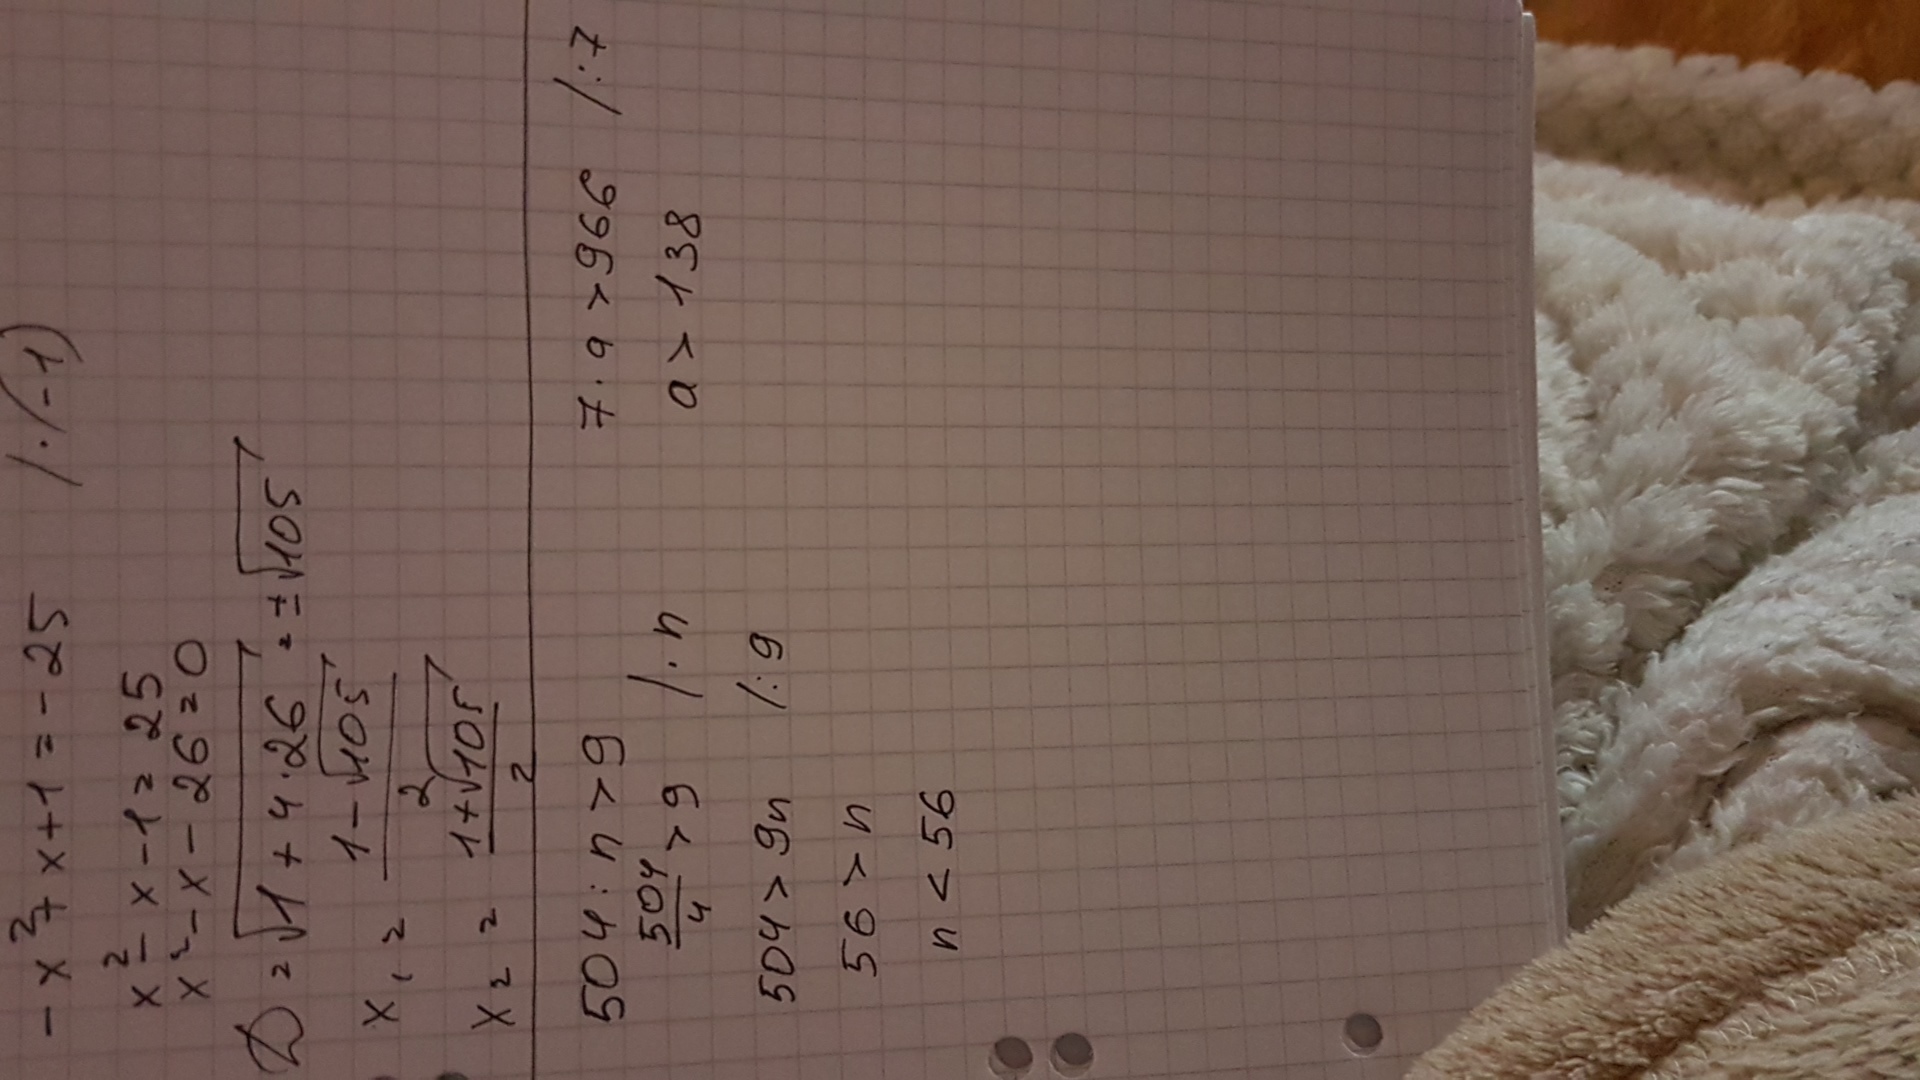 - x² + x + 1 = - 25 / · (-1)
x² - x - 1 = 25
x² - x - 26 = 0
D = √1 + 4 · 26 = ± √105
x₁ = 1 - √105 / 2
x₂ = 1 + √105 / 2
504 : n > 9
504/4 > 9 / · n
504 > 9n / : 9
56 > n
n < 56
7 · a > 966 / : 7
a > 138